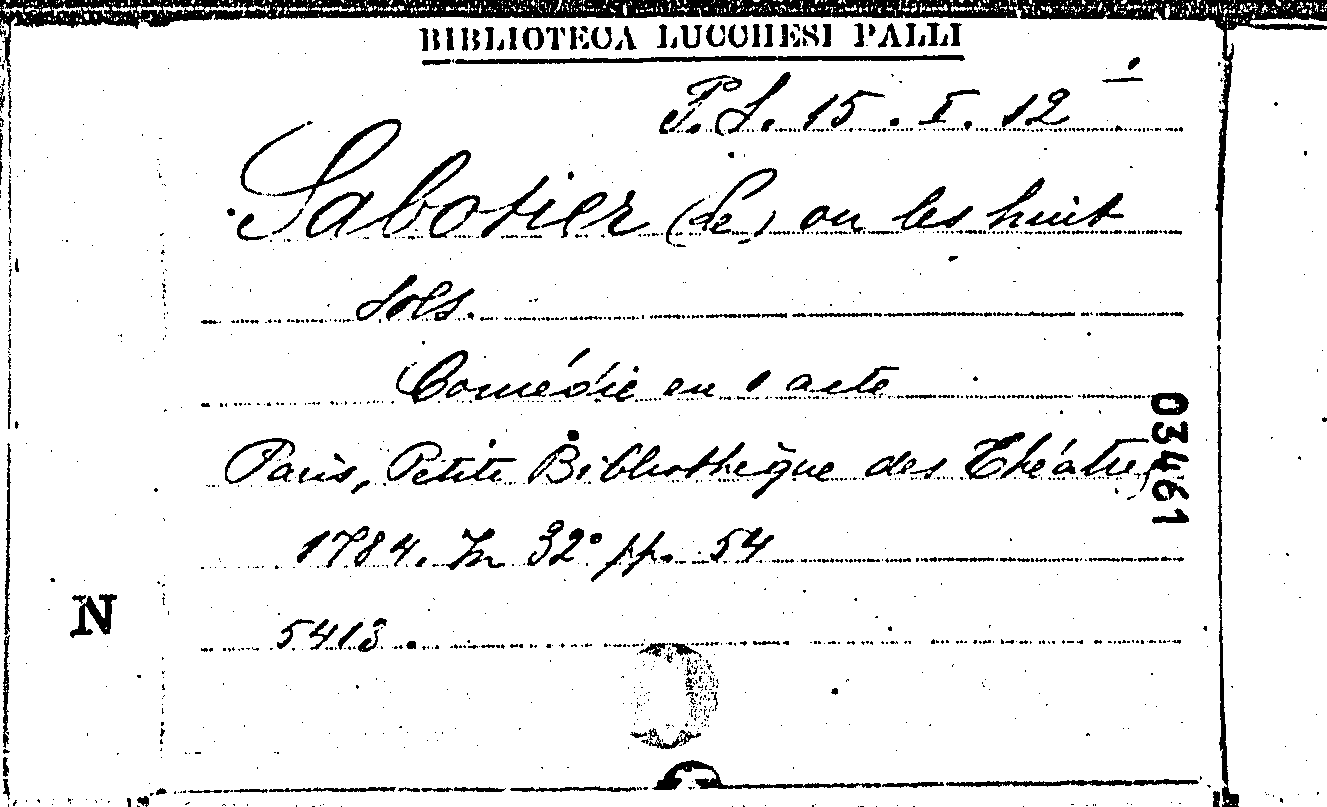 BIBLIOTECA LUCCHESI PALLI
P.S. 15. I. 12
Sabotier (Le) ou les huit
sols.
Comédie en 1 acte
Paris, Petite Bibliothèque des Théatres,
1784. In 32° pp. 54
5413.
N
03461